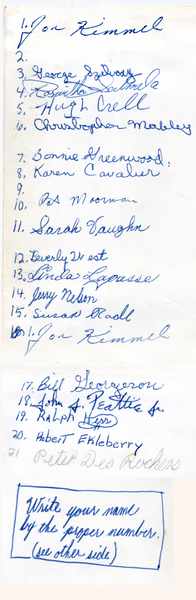 1. Jon Kimmel
2.
3. George
4.
5. Hugh
6. Christopher Mobley
7. Bonnie Greenwood
8. Karen Cavalier
9.
10. Pat Moorman
11. Sarah Vaughn
12. Beverly
13. Linda Lapasse
14. Jerry Nelson
15. Susan
1. Jon Kimmel
17. Bill Georgeron
18. John J. Peattie Jr
19. Ralph
20. Robert Ekleberry
21 Peter Des Rochers
Write your name
by the proper number.
(see other side)